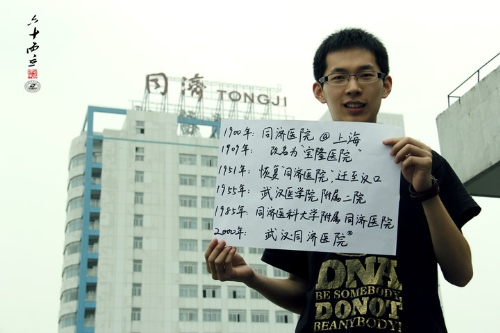 六十而立
同濟 TONGJI
1900年: 同济医院 @ 上海
1909年: 改名为"宝隆医院"
1951年: 恢复"同济医院", 迁至汉口
1955年: 武汉医学院附属二院
1985年: 同济医科大学附属同济医院
2000年: 武汉同济医院®
DNA
BE SOMEBODY
DO NOT
BE ANYBODY